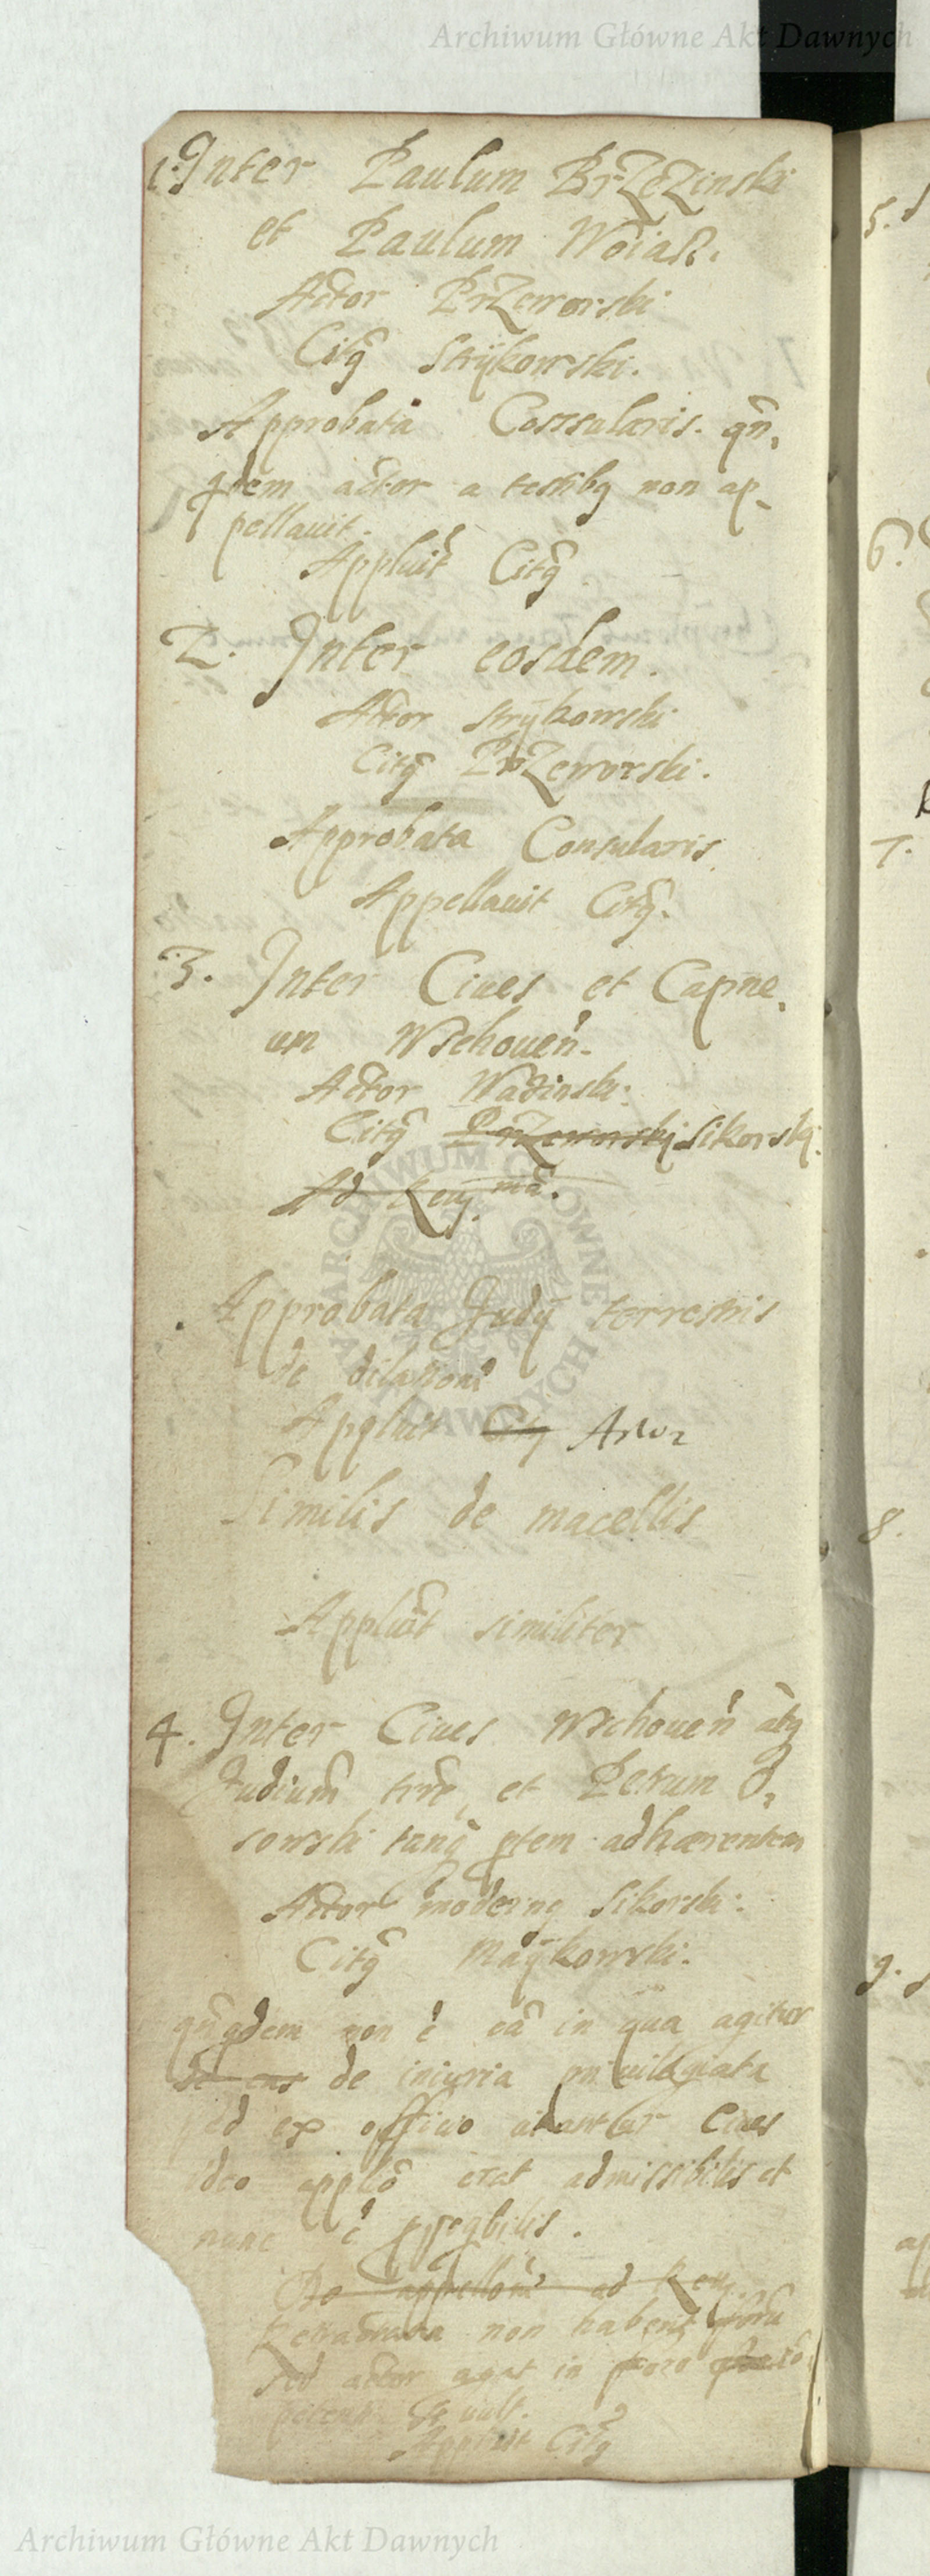 Archiwum Główne Akt Dawnych
1. Inter Paulum BrZeZinski
et Paulum Woiak.
Actor PrZeworski
Citq Strÿkowski.
Approbata Cossularis. qn̄,
qdem actor a testibq non ap-
pellauit.
Appluit Citq
2. Inter eosdem.
Actor Strÿkowski
Citq PrZeworski.
Approbata Consularis
Appellauit Citq.
3. Inter Ciues et Capne,
um Wschouen̄.
Actor Wadinski.
Citq PrZeworskÿ Sikorskÿ.
Ad Reg. ma.
Approbata Judÿ terrestris
de dilatione
Appluit Citq Actor
Similis de macellis
Appluit similiter
4. Inter Ciues Wschouen̄ atq
Judium trre, et Petrum O,
sowski tanq ptem adhærentem
Actor modernq Sikorski.
Citq Maÿkowski.
qn̄qdem non ē eā in qua agitur
de iniuria priuilegiata
sed ex officio citantur Ciues
ideo applo erat admissibilis et
nunc ē pseqbilis.
appellone ad Reg.
non habent forū
sed actor agat in foro
si uult.
Appluit Citq
5.
6.
7.
8.
9.
ARCHIWUM GŁÓWNE AKT DAWNYCH
Archiwum Główne Akt Dawnych